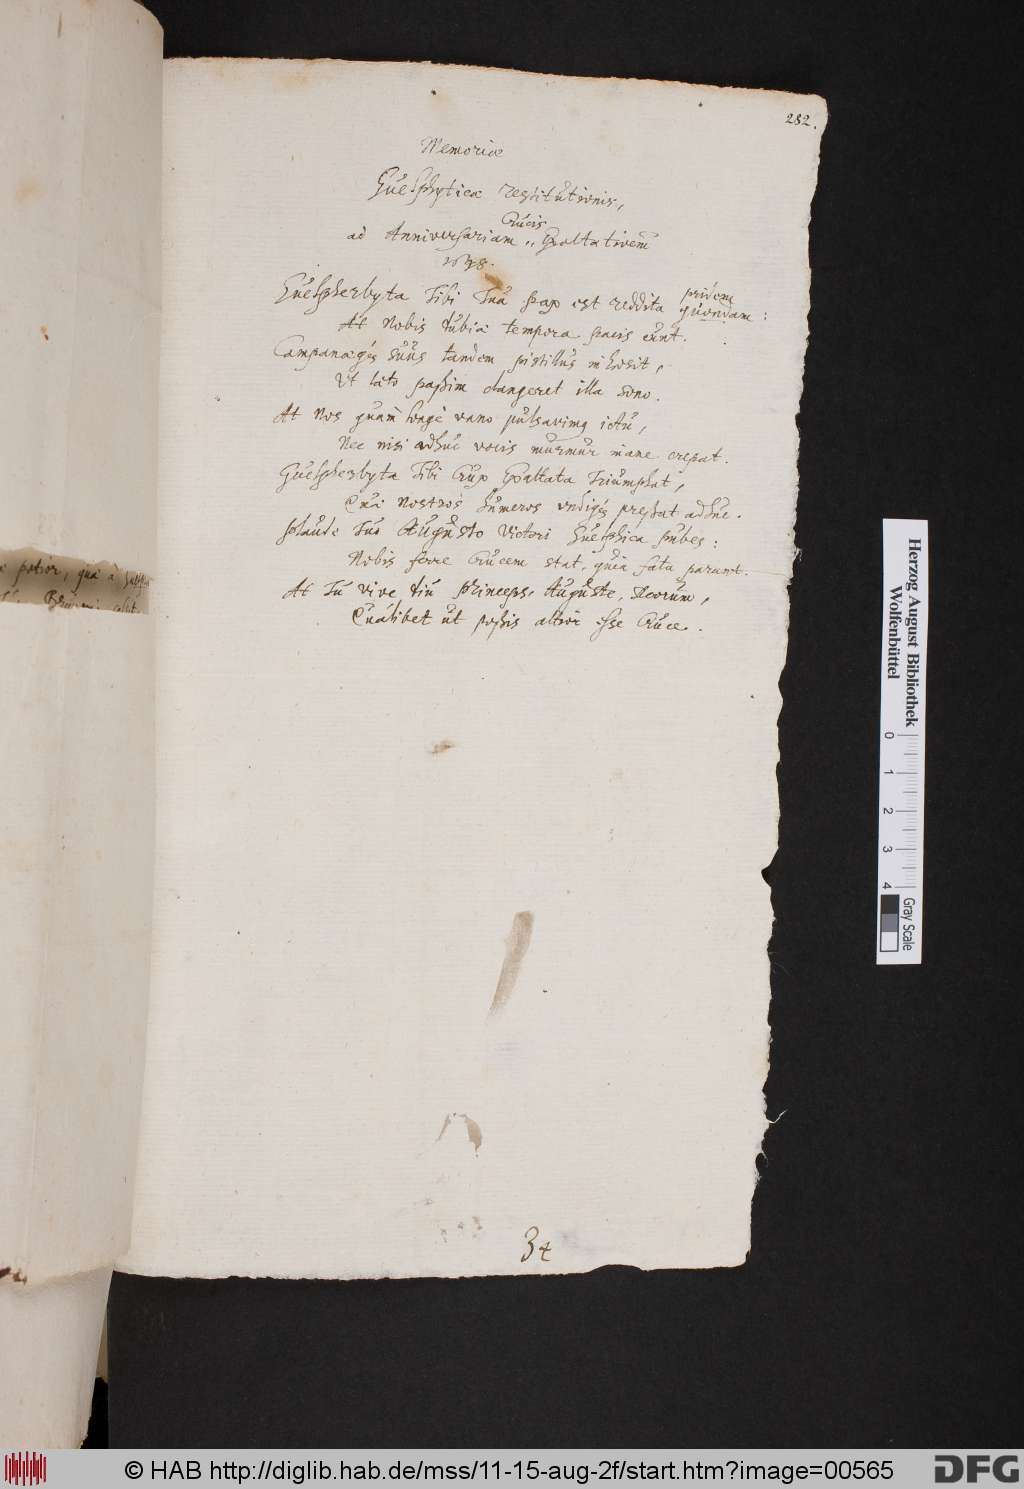 282.
Memoriæ
Guelphyticæ restitutionis,
ad Anniversariam Crucis Exaltationem
1648.
Guelpherbyta Tibi Tua pax est reddita quondam: pridem
At Nobis dubiæ tempora pacis eunt.
Campanæque suus tandem pistillus inhæsit,
Ut læto passim clangeret illa sono.
At Nos quam longè vano pulsavimus ictu,
Nec nisi adhuc vocis murmur inane crepat.
Guelpherbyta Tibi Crux Exaltata Triumphat,
Quæ nostros humeros undique pressat adhuc.
Plaude Tuo Augusto Victori Guelphica pubes:
Nobis ferre Crucem stat, quia fata parant.
At Tu vive diu Princeps, Auguste, Deorum,
Quâlibet ut possis altior esse Cruce.
34
e potior, quâ à
Herzog August Bibliothek
Wolfenbüttel
0 1 2 3 4
Gray Scale
© HAB http://diglib.hab.de/mss/11-15-aug-2f/start.htm?image=00565
DFG